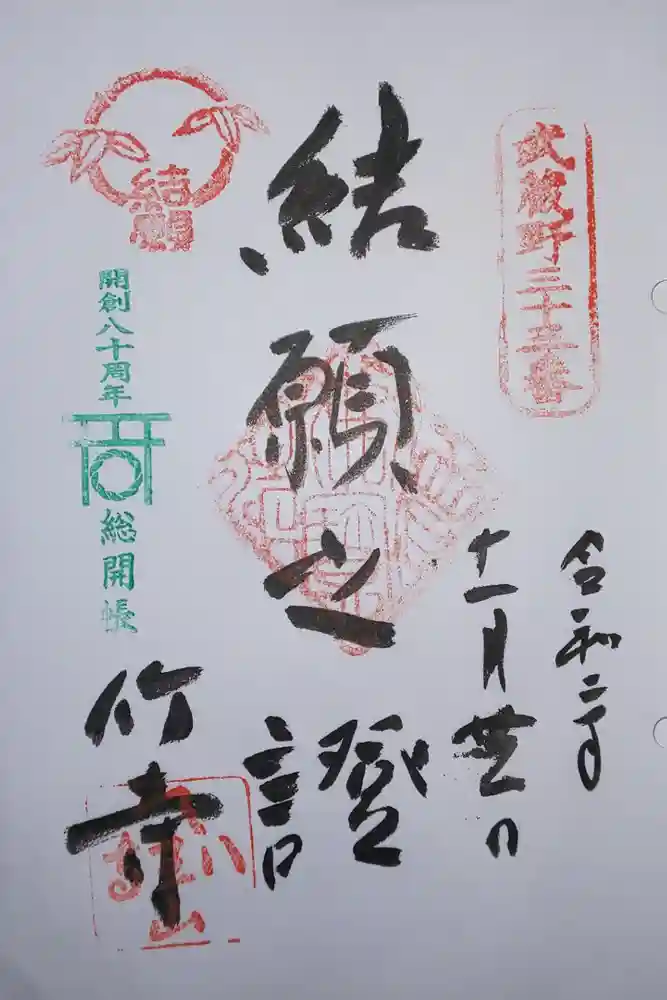 武蔵野三十三番
令和二年
十一月 日
結願之證
結願
開創八十周年
総開帳
竹寺